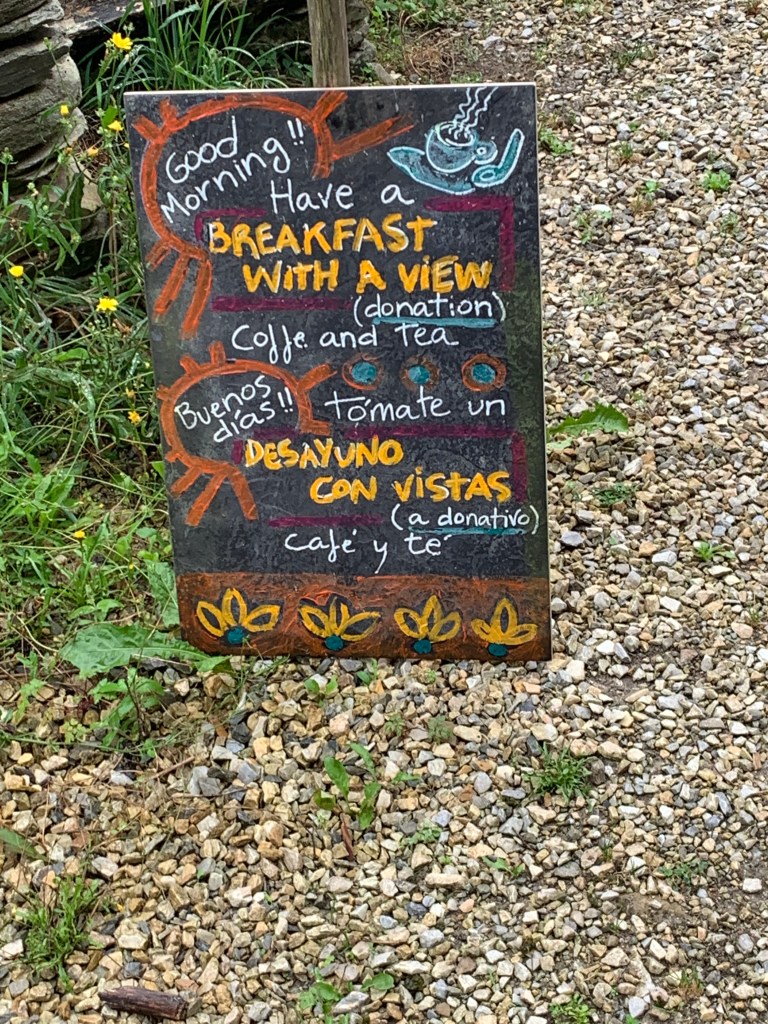 Good
Morning!!
Have a
BREAKFAST
WITH A VIEW
(donation)
Coffe and Tea
Buenos
días!!
Tómate un
DESAYUNO
CON VISTAS
(a donativo)
Café y té